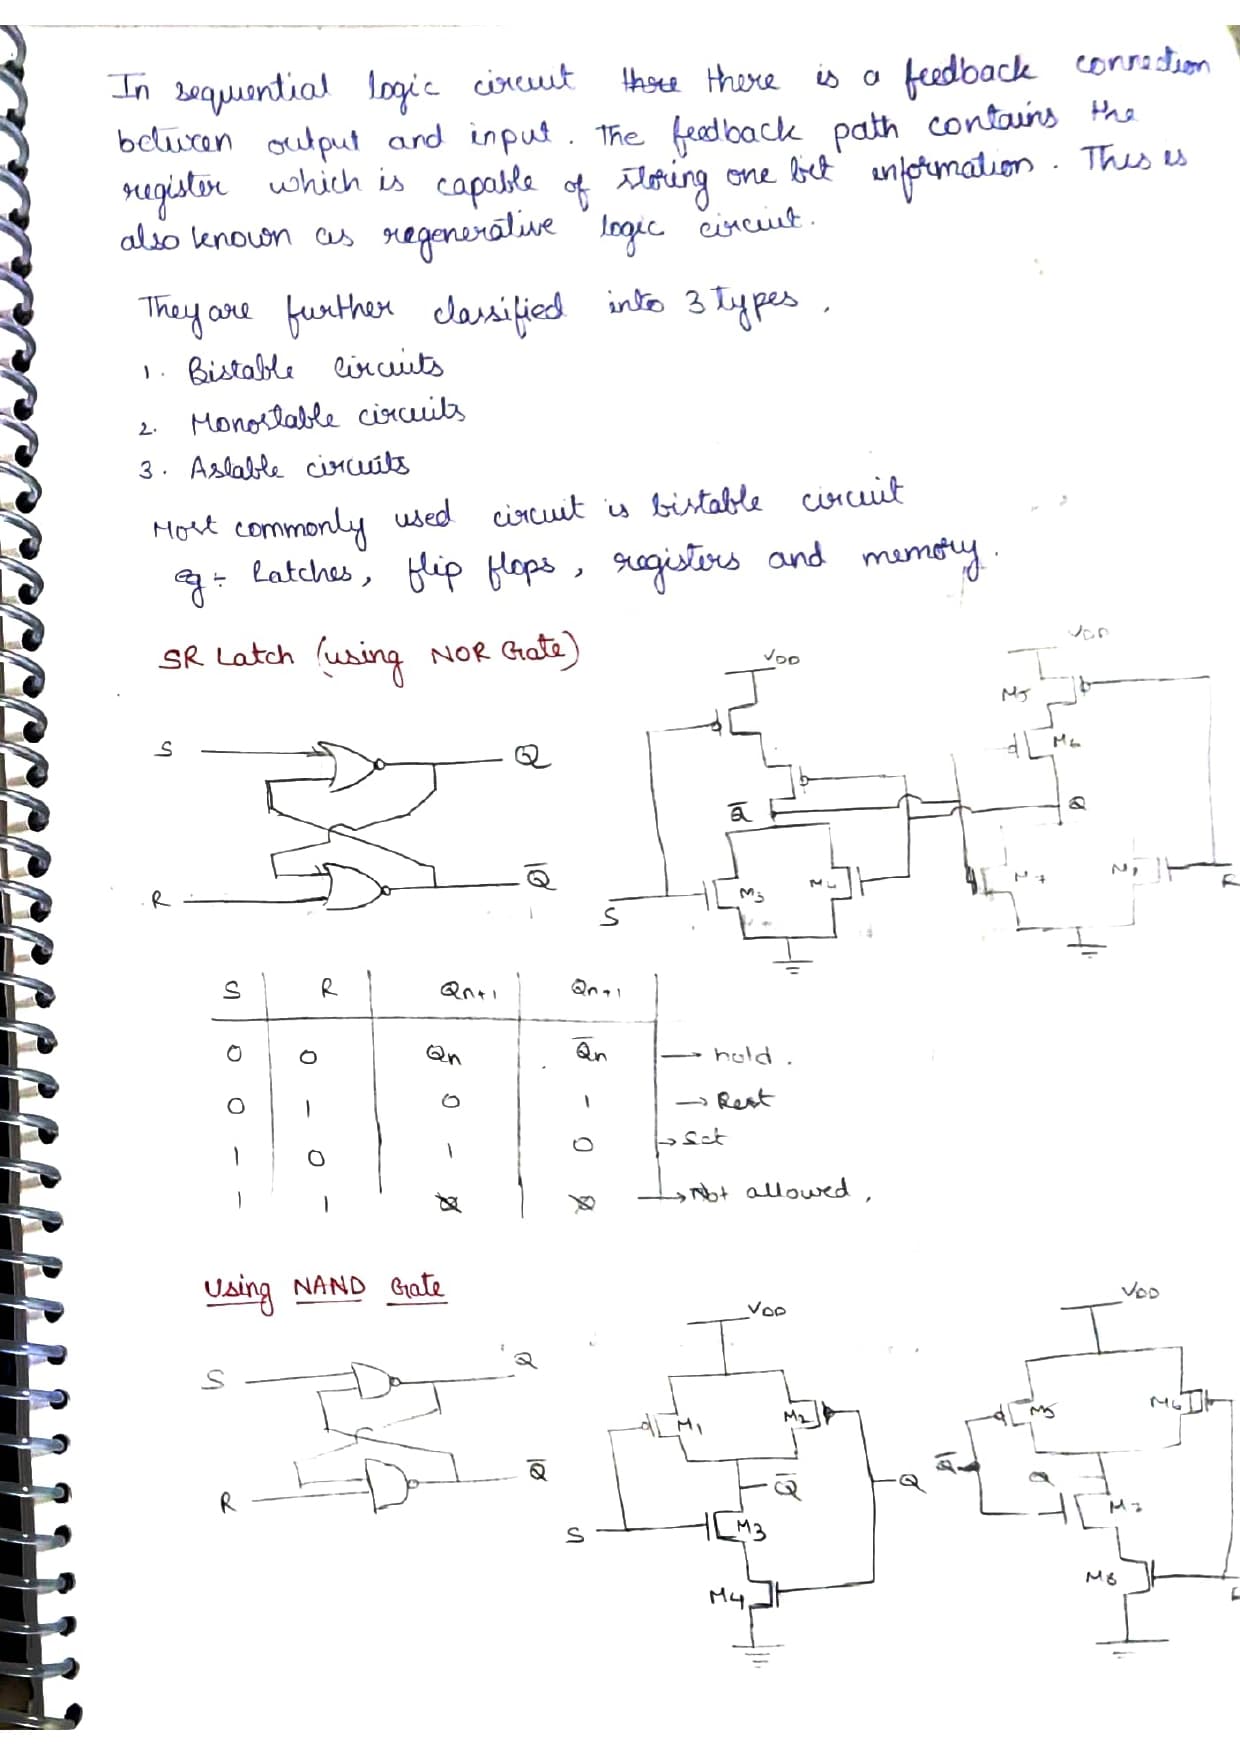 In sequential logic circuit there there is a feedback connection
between output and input. The feedback path contains the
register which is capable of storing one bit information. This is
also known as regenerative logic circuit.
They are further classified into 3 types.
1. Bistable circuits
2. Monostable circuits
3. Astable circuits
Most commonly used circuit is bistable circuit
eg:- Latches, flip flops, registers and memory.
SR Latch (using NOR Gate)
VDD
VDD
M5
S
Q
M6
Q̅
Q
R
Q̅
M3
M4
M7
S
S R Qn+1 Qn+1
0 0 Qn Q̅n → hold.
0 1 0 1 → Rest
1 0 1 0 → Set
1 1 → Not allowed,
Using NAND Gate
VDD
VDD
S
Q
M1
M2
M5
M6
Q̅
Q̅
Q
Q̅
Q
R
S
M3
M7
M4
M8